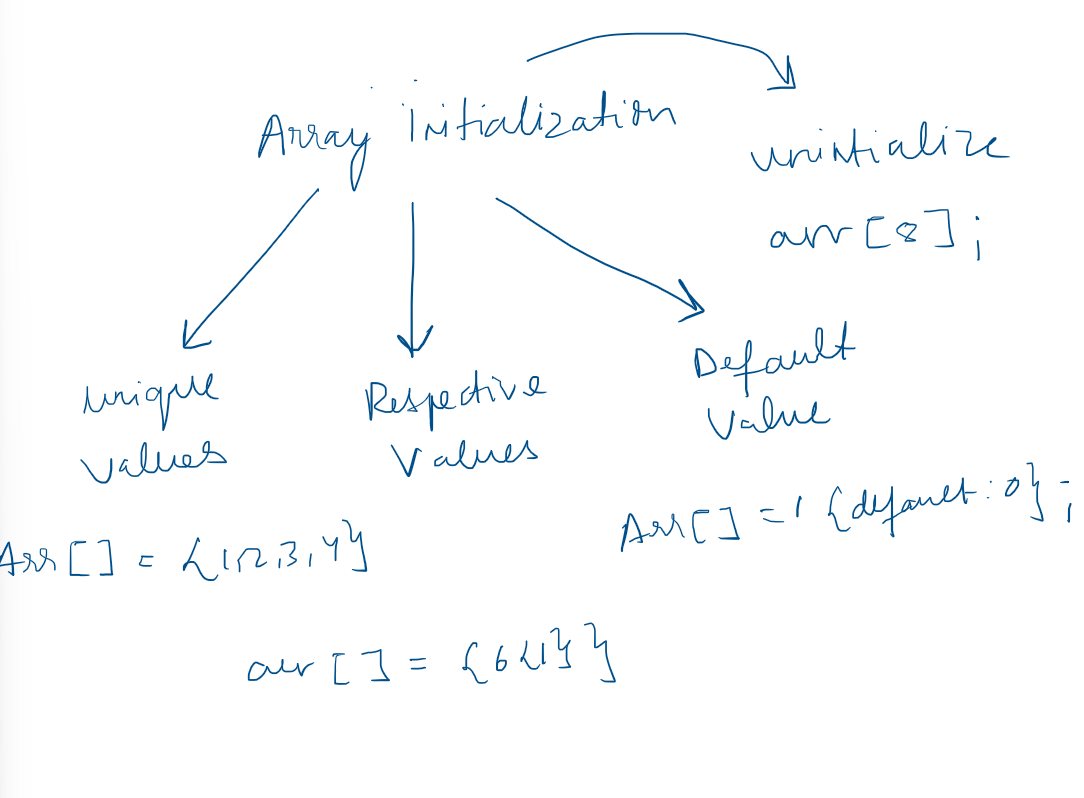 Array initialization
unintialize
arr[8];
Unique
values
Respective
Values
Default
Value
Arr[] = {1,2,3,4}
Arr[] = '{default:0};
arr[] = {6{1}}